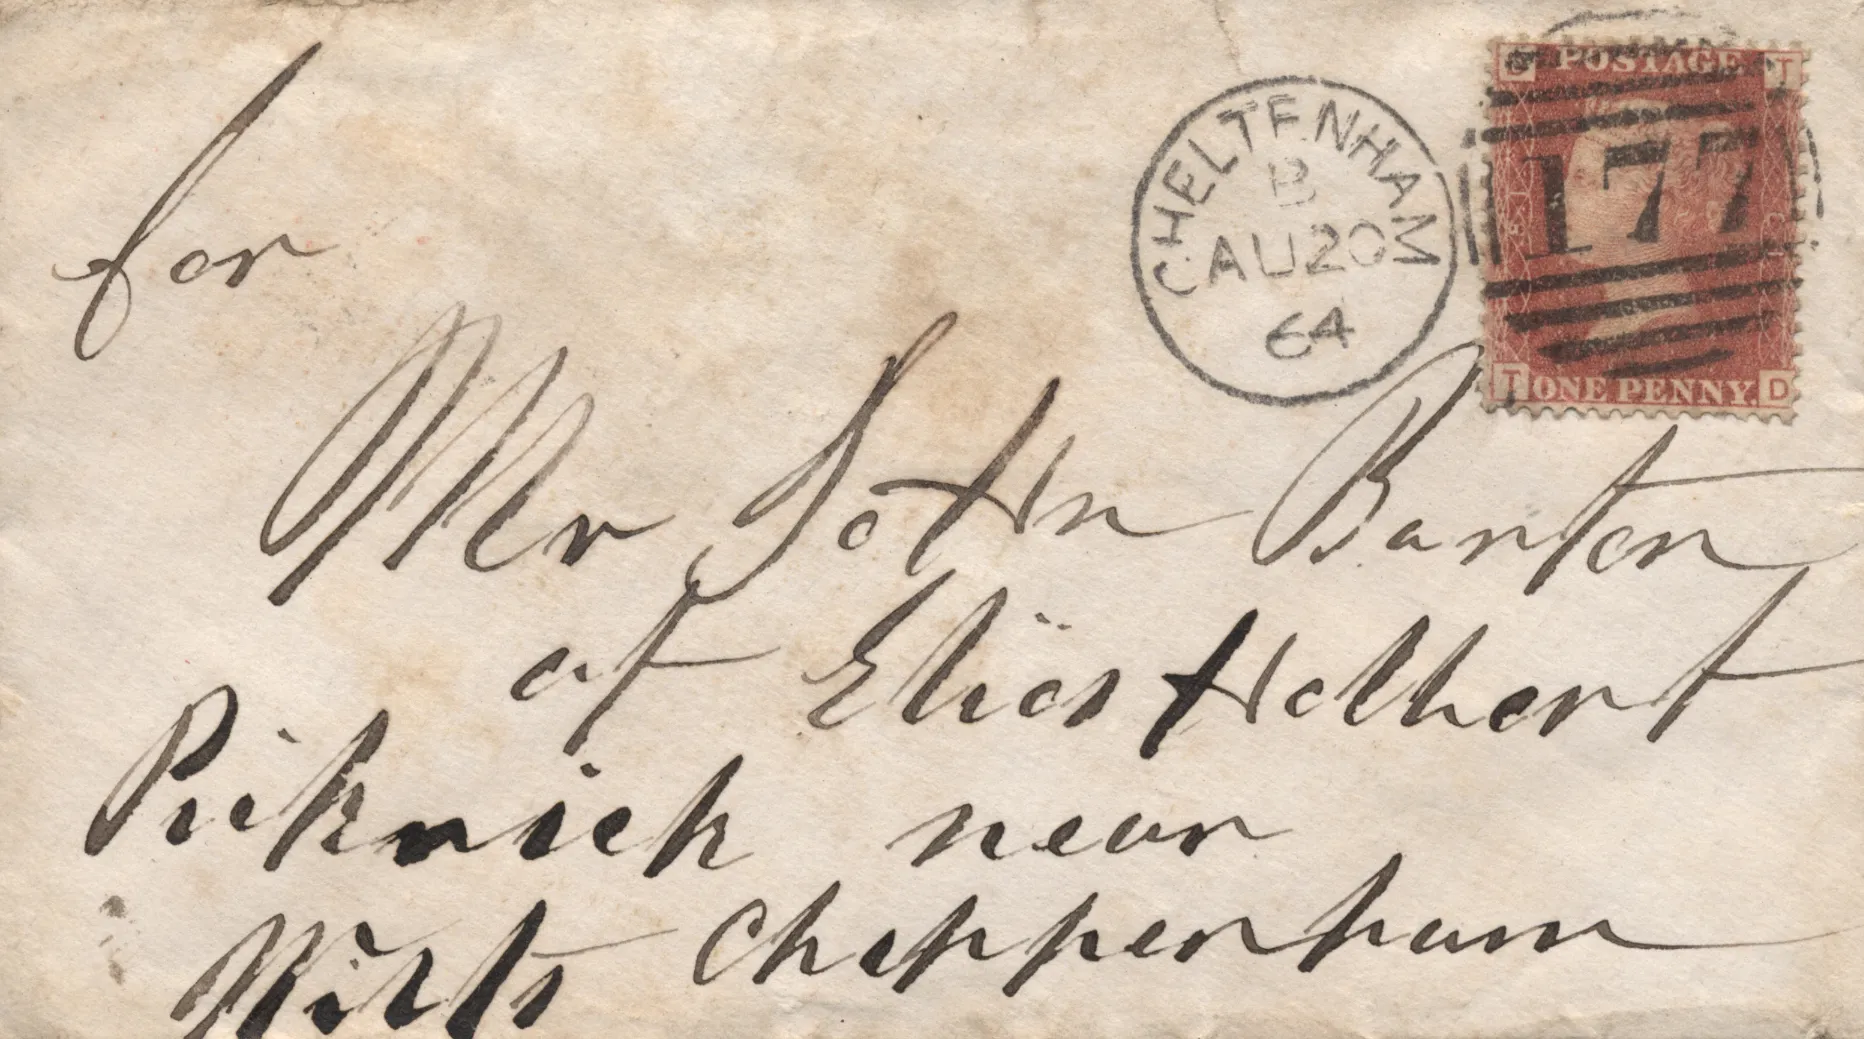 POSTAGE T
CHELTENHAM
B
AU 20
64
177
T ONE PENNY. D
for
Mr John Barton
at Elias Holbert
Pickwick near
Wilts Chippenham